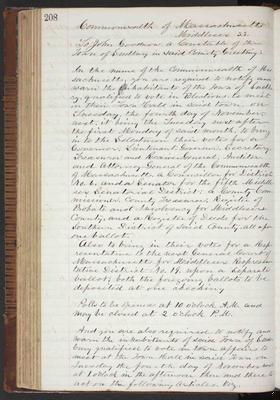 208
Commonwealth of Massachusetts
Middlesex SS.
To John Goodnow a Constable of the
Town of Sudbury in said County Greeting:
In the name of the Commonwealth of Mas
sachusetts, you are required to notify and
warn the inhabitants of the Town of Sudb
ury, qualified to vote in Elections to meet
in their Town Hall in said town on
Tuesday, the fourth day of November
next, it being the Tuesday next after
the first Monday of said month, to bring
in to the Selectmen their votes for a
Governor, Lieutenant Governor, Secretary,
Treasurer and Receiver General, Auditor,
and Attorney General of the Commonwealth
of Massachusetts, a Councillor for District
No. 6. and a Senator for the fifth Middle
sex Senatorial District: a County Com
missioner, County Treasurer, Register of
Probate and Insolvency for Middlesex
County, and a Register of Deeds for the
Southern District of said County, all upon
one ballot.
Also to bring in their votes for a Rep
resentative to the next General Court of
Massachusetts for Middlesex Represen
tative District No. 19. upon a separate
ballot; both the foregoing ballots to be
deposited at one balloting.
Polls to be opened at 10 o'clock A.M. and
may be closed at 2 o'clock P.M.
And you are also required to notify and
warn the inhabitants of said Town of Sud
bury qualified to vote in town affairs to
meet at the Town Hall in said Town on
Tuesday the fourth day of November next
at 1 o'clock in the afternoon then and there to
act on the following Articles. viz